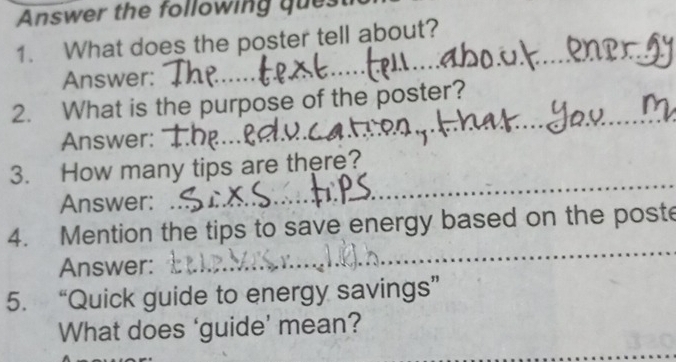 Answer the following
1. What does the poster tell about?
Answer: The text tell about energy
2. What is the purpose of the poster?
Answer: the education, that you
3. How many tips are there?
Answer: Sixs tips
4. Mention the tips to save energy based on the poste
Answer:
5. “Quick guide to energy savings”
What does ‘guide’ mean?